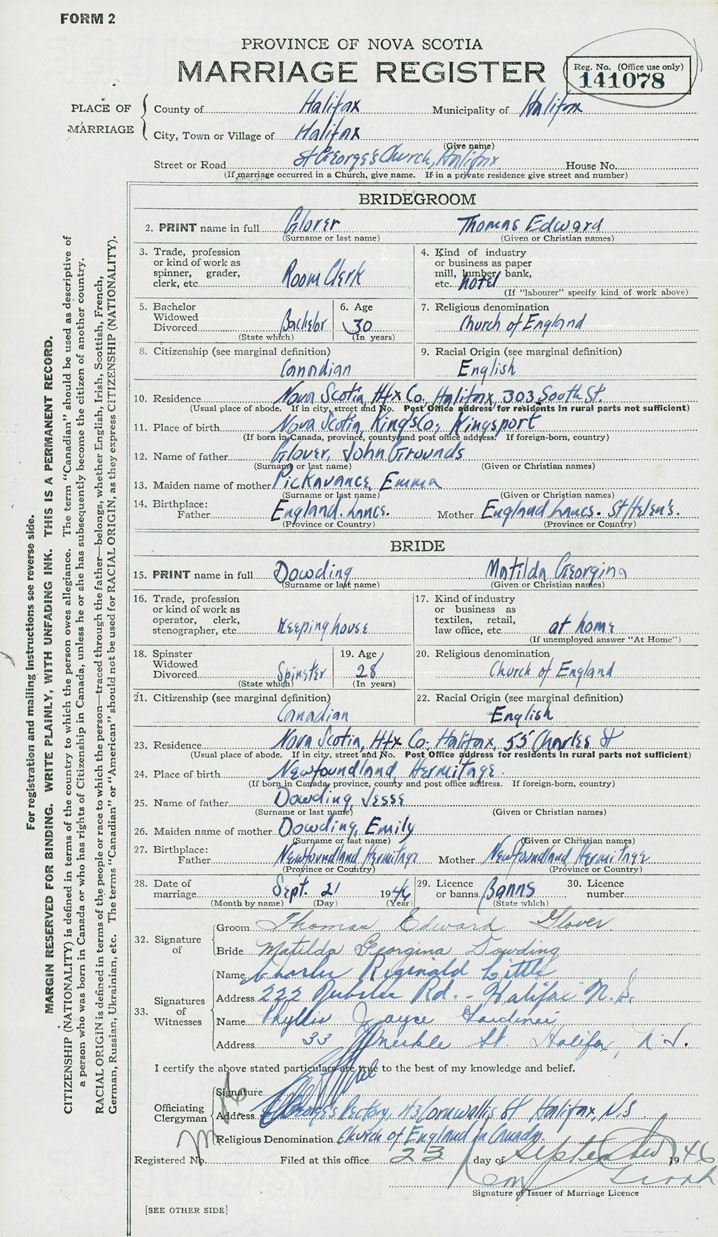 FORM 2
PROVINCE OF NOVA SCOTIA
MARRIAGE REGISTER
Reg. No. (Office use only)
141078
PLACE OF MARRIAGE
County of Halifax Municipality of Halifax
City, Town or Village of Halifax
(Give name)
Street or Road St George's Church, Halifax House No.
(If marriage occurred in a Church, give name. If in a private residence give street and number)
BRIDEGROOM
2. PRINT name in full Glover Thomas Edward
(Surname or last name) (Given or Christian names)
3. Trade, profession or kind of work as spinner, grader, clerk, etc. Room Clerk
4. Kind of industry or business as paper mill, lumber, bank, etc. hotel
(If "labourer" specify kind of work above)
5. Bachelor Widowed Divorced Bachelor
(State which)
6. Age 30
(In years)
7. Religious denomination
Church of England
8. Citizenship (see marginal definition)
Canadian
9. Racial Origin (see marginal definition)
English
10. Residence Nova Scotia, Hfx Co. Halifax, 303 South St.
(Usual place of abode. If in city, street and No. Post Office address for residents in rural parts not sufficient)
11. Place of birth Nova Scotia, Kings Co, Kingsport
(If born in Canada, province, county and post office address. If foreign-born, country)
12. Name of father Glover, John Grounds
(Surname or last name) (Given or Christian names)
13. Maiden name of mother Pickavance, Emma
(Surname or last name) (Given or Christian names)
14. Birthplace: Father England. Lancs. Mother England Lancs. St Helen's.
(Province or Country) (Province or Country)
BRIDE
15. PRINT name in full Dowding Matilda Georgina
(Surname or last name) (Given or Christian names)
16. Trade, profession or kind of work as operator, clerk, stenographer, etc. Keeping house
17. Kind of industry or business as textiles, retail, law office, etc. at home
(If unemployed answer "At Home")
18. Spinster Widowed Divorced Spinster
(State which)
19. Age 28
(In years)
20. Religious denomination
Church of England
21. Citizenship (see marginal definition)
Canadian
22. Racial Origin (see marginal definition)
English
23. Residence Nova Scotia, Hfx Co. Halifax, 55 Charles St
(Usual place of abode. If in city, street and No. Post Office address for residents in rural parts not sufficient)
24. Place of birth Newfoundland, Hermitage.
(If born in Canada, province, county and post office address. If foreign-born, country)
25. Name of father Dowding, Jesse
(Surname or last name) (Given or Christian names)
26. Maiden name of mother Dowding, Emily
(Surname or last name) (Given or Christian names)
27. Birthplace: Father Newfoundland Hermitage Mother Newfoundland Hermitage
(Province or Country) (Province or Country)
28. Date of marriage Sept. 21 1946
(Month by name) (Day) (Year)
29. Licence or banns Banns
(State which)
30. Licence number
32. Signature of
Groom Thomas Edward Glover
Bride Matilda Georgina Dowding
33. Signatures of Witnesses
Name Charles Reginald Little
Address 222 Rd. - Halifax N.S.
Name Phyllis Joyce Gardiner
Address 33 Merkle St. Halifax, N.S.
I certify the above stated particulars are true to the best of my knowledge and belief.
Officiating Clergyman
Signature
Address St George's Rectory, 43 Cornwallis St Halifax, N.S
Religious Denomination Church of England in Canada
Registered No. Filed at this office 23 day of September 1946
Signature of Issuer of Marriage Licence
[SEE OTHER SIDE]
For registration and mailing instructions see reverse side.
MARGIN RESERVED FOR BINDING. WRITE PLAINLY, WITH UNFADING INK. THIS IS A PERMANENT RECORD.
CITIZENSHIP (NATIONALITY) is defined in terms of the country to which the person owes allegiance. The term "Canadian" should be used as descriptive of
a person who was born in Canada or who has rights of Citizenship in Canada, unless he or she has subsequently become the citizen of another country.
RACIAL ORIGIN is defined in terms of the people or race to which the person—traced through the father—belongs, whether English, Irish, Scottish, French,
German, Russian, Ukrainian, etc. The terms "Canadian" or "American" should not be used for RACIAL ORIGIN, as they express CITIZENSHIP (NATIONALITY).